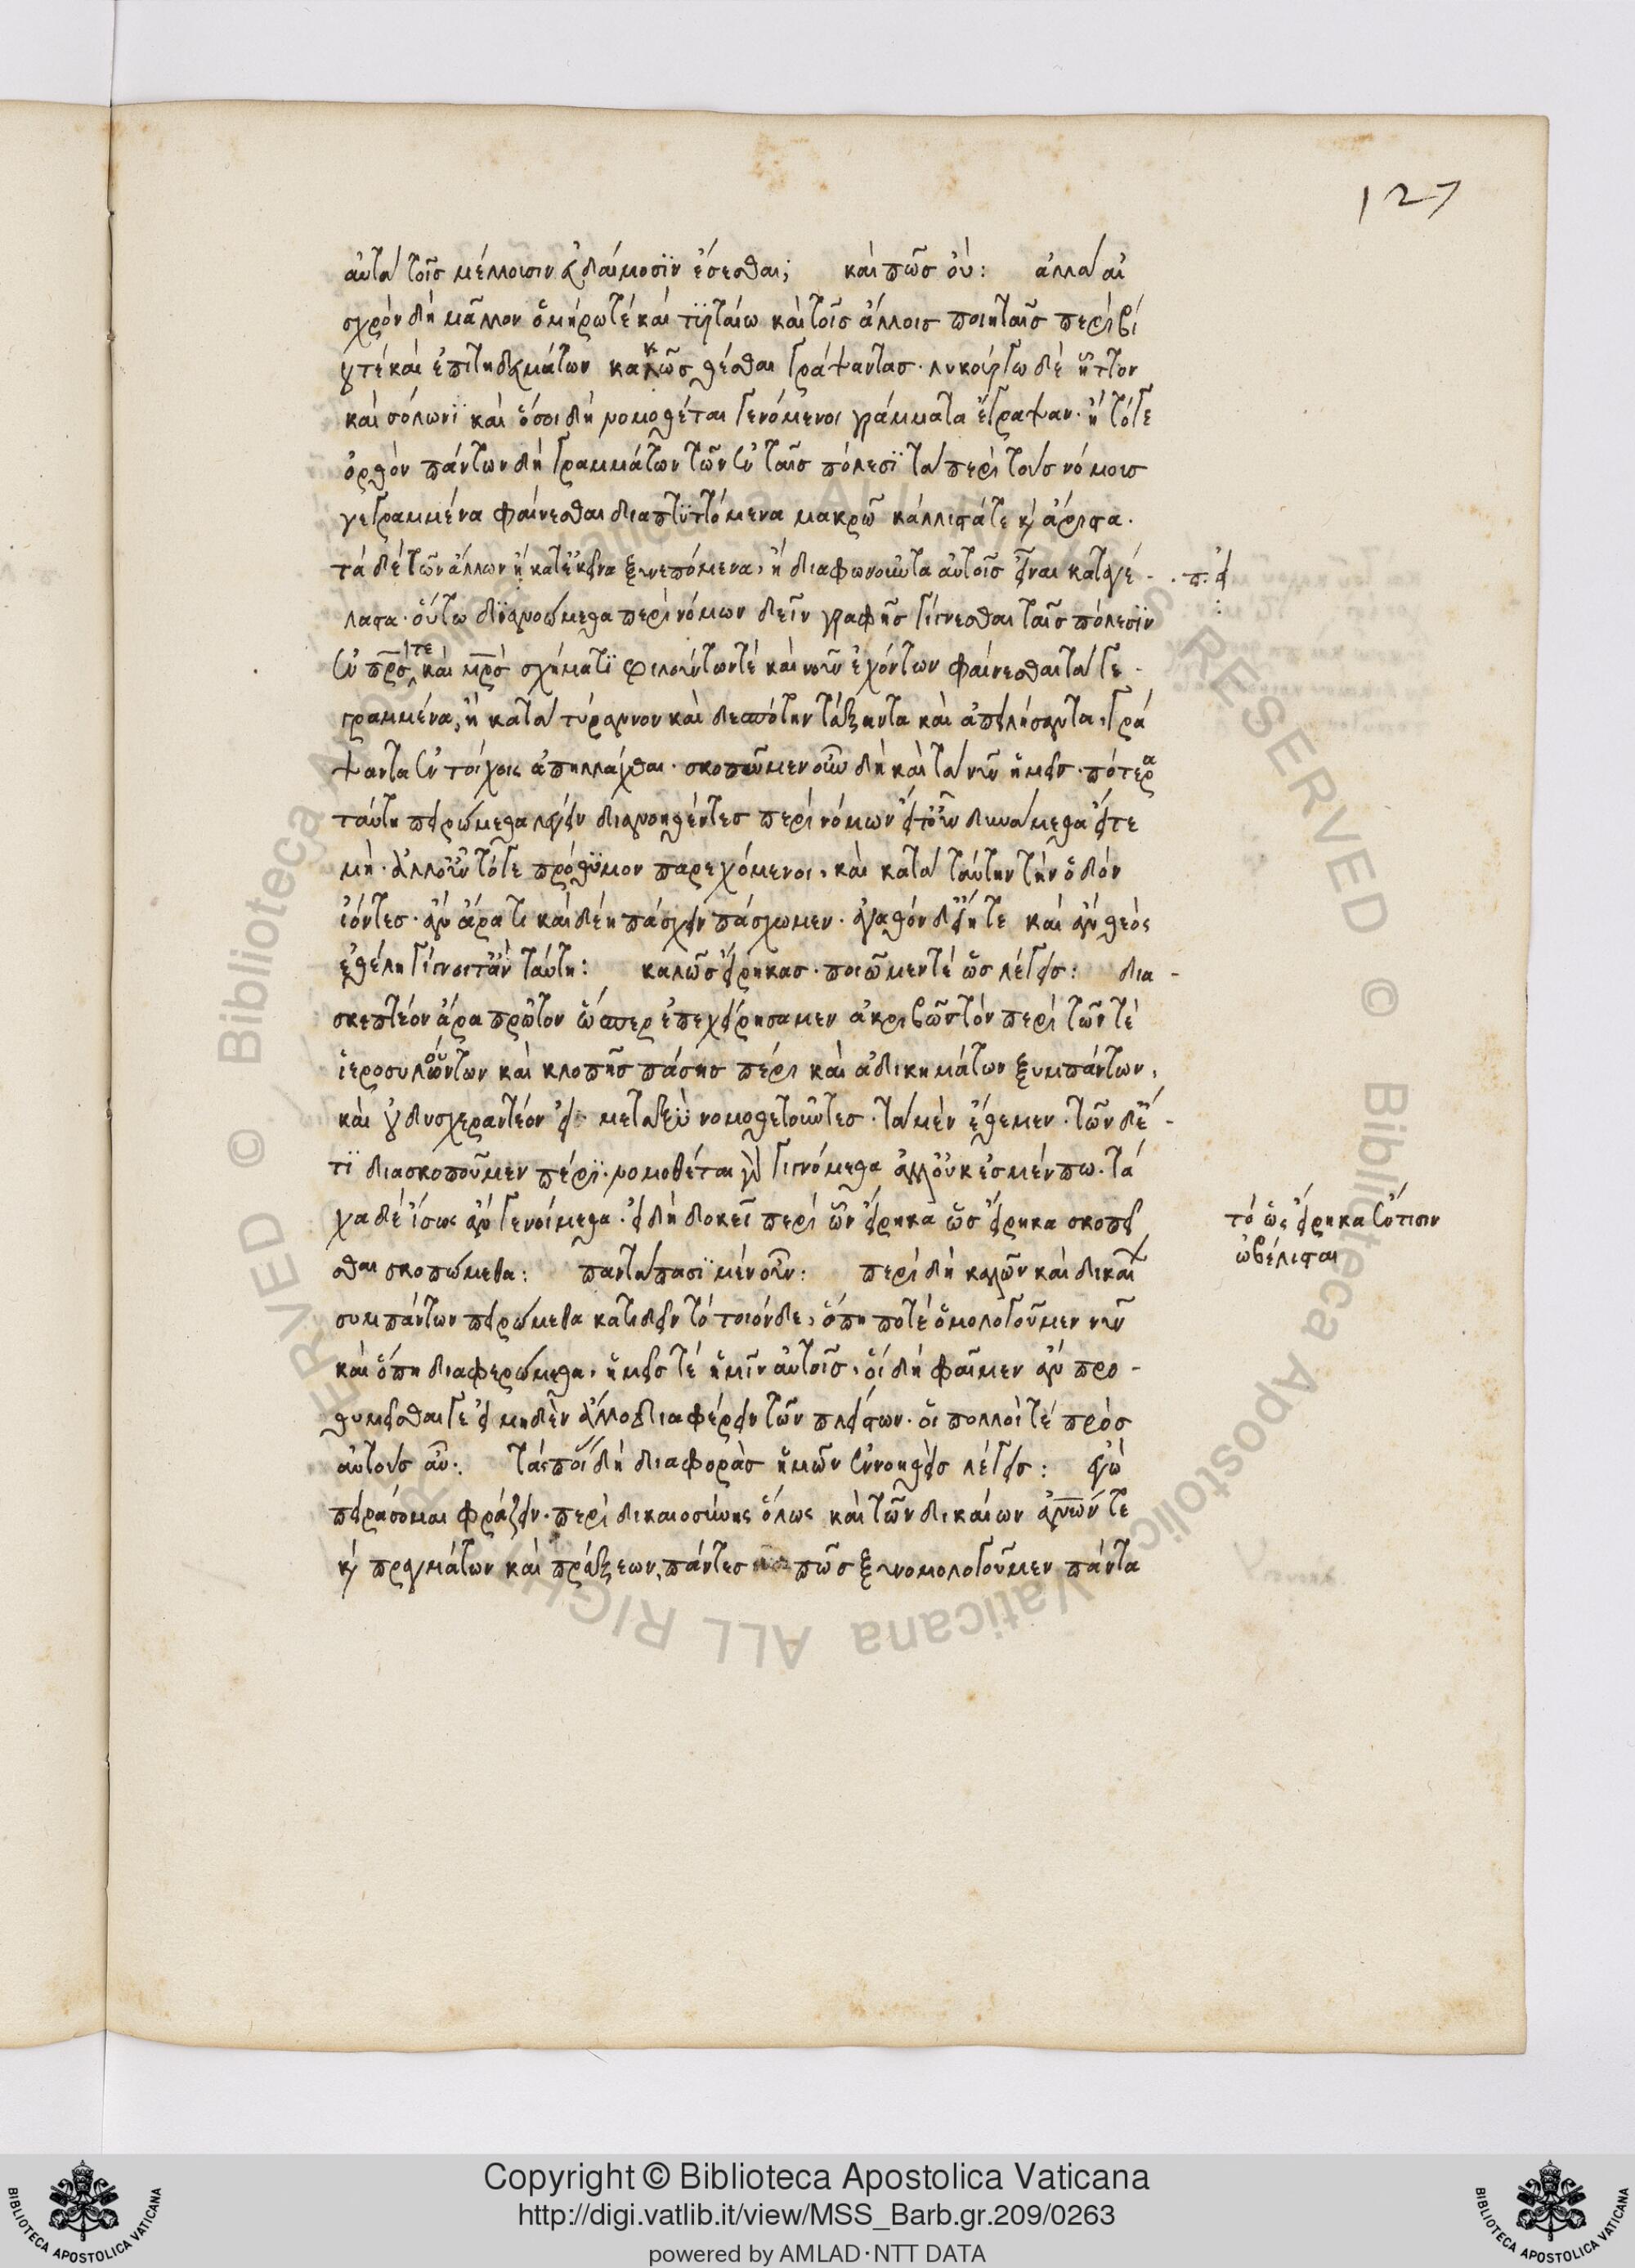 127
αὐτὰ τοῖς μέλλουσιν εὐδαίμοσϊν ἔσεσθαι; καὶ πῶς οὔ: ἀλλὰ αἰ
σχρὸν δὴ μᾶλλον ὁμήρω τὲ καὶ τϋρταίω καὶ τοῖς ἄλλοις ποιηταῖς περὶ βί
ου τὲ καὶ ἐπιτηδευμάτων κακῶς θέσθαι γράψαντας· λυκούργω δὲ ἧττον
καὶ σόλωνϊ καὶ ὅσοι δὴ νομοθέται γενόμενοι γράμματα ἔγραψαν· ἢ τόγε
ὀρθὸν πάντων δὴ γραμμάτων τῶν ἐν ταῖς πόλεσϊ τὰ περὶ τοὺς νόμους
γεγραμμένα φαίνεσθαι διαπτϋττόμενα μακρῶ κάλλιστά τε κ̀ ἄριστα·
τὰ δὲ τῶν ἄλλων ἢ κατ' ἐκεῖνα ξυνεπόμενα, ἢ διαφωνοῦντα αὐτοῖς εἶναι καταγέ-
λαστα· οὕτω διανοώμεθα περὶ νόμων δεῖν γραφῆς γίγνεσθαι ταῖς πόλεσϊν
ἐν πρ̅ς τε καὶ μρ̅ς σχήματϊ φιλούντων τὲ καὶ νοῦν ἐχόντων φαίνεσθαι τὰ γε-
γραμμένα, ἢ κατὰ τύραννον καὶ δεσπότην τάξαντα καὶ ἀπειλήσαντα, γρά
ψαντα ἐν τοίχοις ἀπηλλάχθαι· σκοπῶμεν οὖν δὴ καὶ τὰ νῦν ἡμεῖς· πότερα
ταύτη πειρώμεθα λέγειν διανοηθέντες περὶ νόμων εἴτ' οὖν δυνάμεθα εἴτε
μὴ· ἀλλ' οὖν τόγε πρόθϋμον παρεχόμενοι, καὶ κατὰ ταύτην τὴν ὁδὸν
ἰόντες· ἂν ἄρα τι καὶ δέη πάσχειν πάσχωμεν· ἀγαθὸν δ' εἴη τε καὶ ἂν θεὸς
ἐθέλη γίγνοιτ' ἂν ταύτη: καλῶς εἴρηκας· ποιῶμεν τὲ ὡς λέγεις: δια-
σκεπτέον ἄρα πρῶτον ὥσπερ ἐπεχειρήσαμεν ἀκριβῶς τὸν περὶ τῶν τὲ
ἱεροσυλούντων καὶ κλοπῆς πάσης πέρι καὶ ἀδικημάτων ξυμπάντων,
καὶ οὐ δυσχεραντέον εἰ μεταξϋ νομοθετοῦντες· τὰ μὲν ἔθεμεν· τῶν δέ-
τϊ διασκοποῦμεν πέρϊ· νομοθέται γὰρ γιγνόμεθα ἀλλ' οὐκ ἐσμέν πω· τά
χα δὲ ἴσως ἂν γενοίμεθα· εἰ δὴ δοκεῖ περὶ ὧν εἴρηκα ὡς εἴρηκα σκοπεῖ
σθαι σκοπώμεθα: πανταπασϊ μὲν οὖν: περὶ δὴ καλῶν καὶ δικαί
συμπάντων πειρώμεθα κατιδεῖν τὸ τοιόνδε, ὅπη ποτὲ ὁμολογοῦμεν νῦν
καὶ ὅπη διαφερώμεθα, ἡμεῖς τὲ ἡμῖν αὐτοῖς, οἵ δὴ φαῖμεν ἂν προ-
θυμεῖσθαι γε εἰ μηδὲν ἄλλο διαφέρειν τῶν πλείστων· οἱ πολλοὶ τὲ πρὸς
αὐτοὺς αὖ: τὰς ποίας δὴ διαφορὰς ἡμῶν ἐννοηθεὶς λέγεις: ἐγὼ
πειράσομαι φράζειν· περὶ δικαιοσύνης ὅλως καὶ τῶν δικαίων ἀνων τε
κ̀ πραγμάτων καὶ πράξεων, πάντες πῶς ξυνομολογοῦμεν πάντα
τὸ ὡς εἴρηκα ἔν τισιν
ὠβέλισται
Copyright © Biblioteca Apostolica Vaticana
http://digi.vatlib.it/view/MSS_Barb.gr.209/0263
powered by AMLAD·NTT DATA
BIBLIOTECA APOSTOLICA VATICANA
BIBLIOTECA APOSTOLICA VATICANA